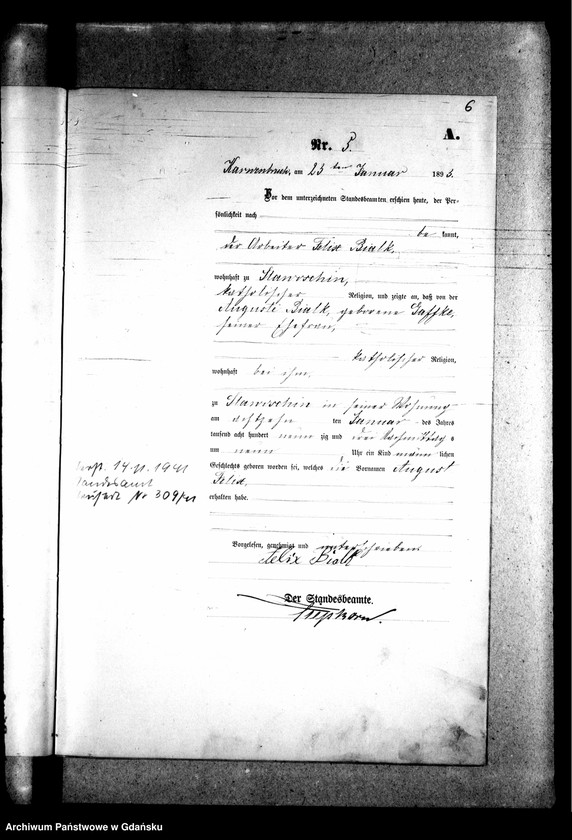 6
A.
Nr. 5.
am 23 ten Januar 1893.
Vor dem unterzeichneten Standesbeamten erschien heute, der Per-
sönlichkeit nach
be kannt,
der Arbeiter Felix Bialk,
wohnhaft zu Slawoschin,
katholischer Religion, und zeigte an, daß von der
Auguste Bialk, geborene Gaffke,
seiner Ehefrau,
katholischer Religion,
wohnhaft bei ihm,
zu Slawoschin in seiner Wohnung
am achtzehn ten Januar des Jahres
tausend acht hundert neun zig und drei Vormittags
um neun Uhr ein Kind männ lichen
Geschlechts geboren worden sei, welches die Vornamen August
Felix,
erhalten habe.
Vorgelesen, genehmigt und unterschrieben
Felix Bialk
Der Standesbeamte.
14.11.1941
Standesamt
Nr 309/41
Archiwum Państwowe w Gdańsku